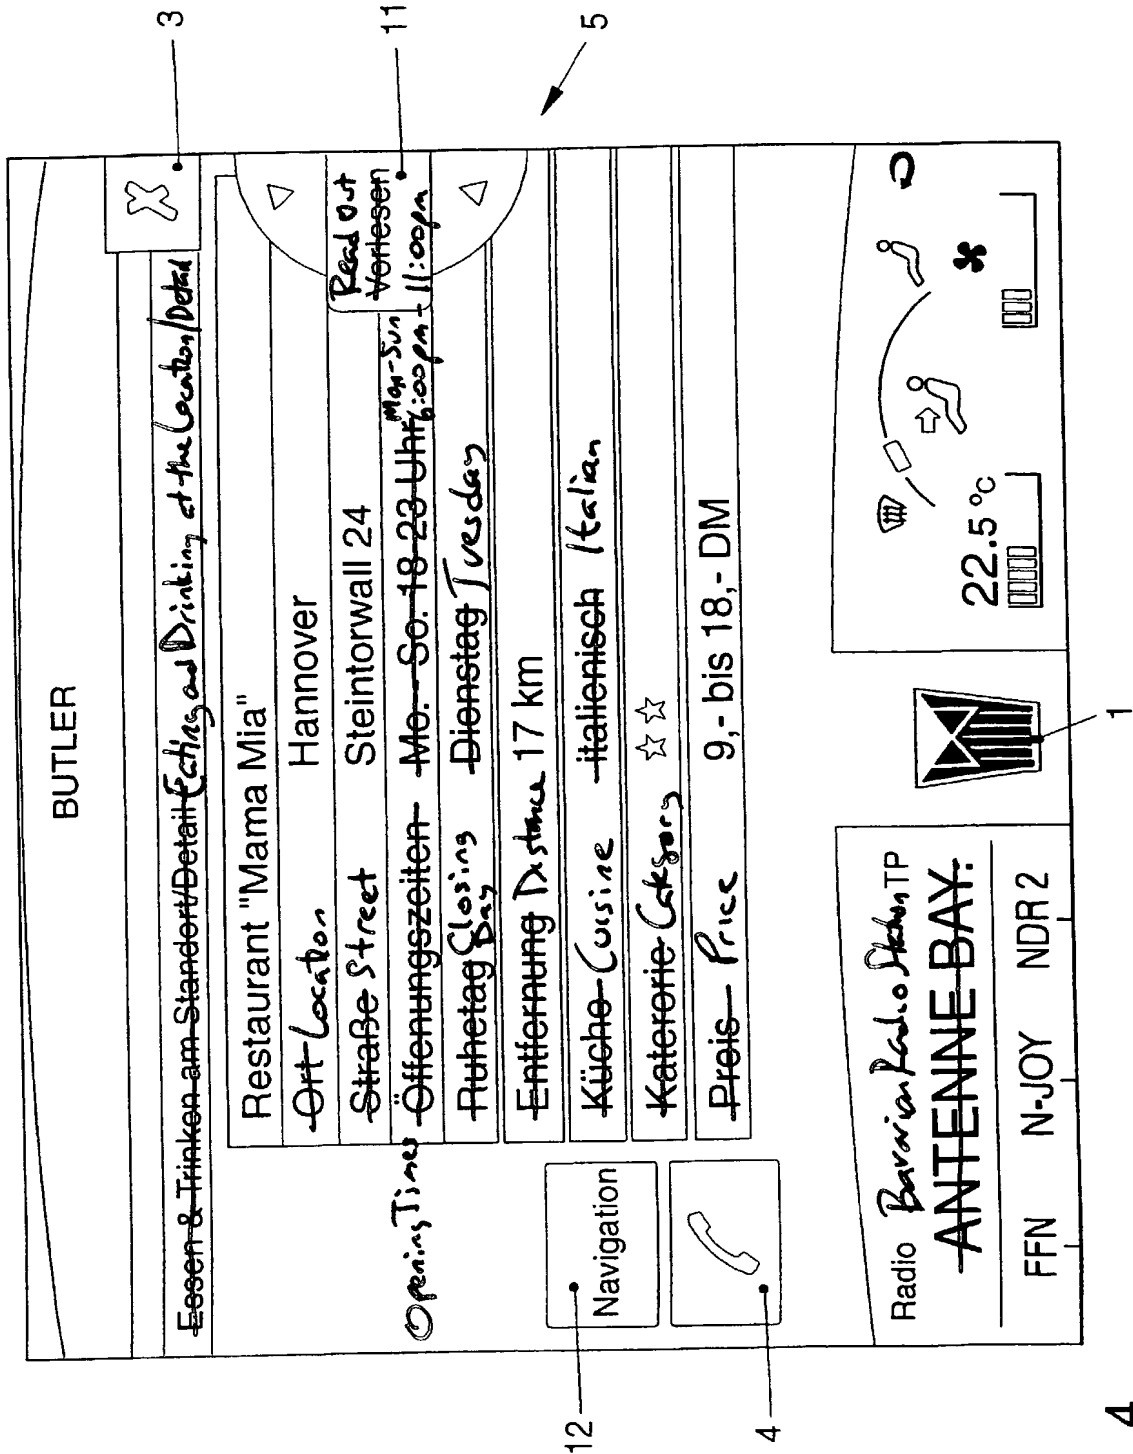 BUTLER
Essen & Trinken am Standort/Detail Eating and Drinking at the Location/Detail
3
Restaurant "Mama Mia"
Ort Location Hannover
Straße Street Steintorwall 24
Read Out
Vorlesen
11
Opening Times Öffenungszeiten Mo. - So. 18-23 Uhr Mon-Sun 6:00pm - 11:00pm
Ruhetag Closing Day Dienstag Tuesday
Entfernung Distance 17 km
5
Küche Cuisine italienisch Italian
Katerorie Category ☆ ☆
Preis Price 9,- bis 18,- DM
12
Navigation
4
Radio Bavarian Radio Station TP
ANTENNE BAY.
FFN N-JOY NDR 2
1
22.5 °C
4